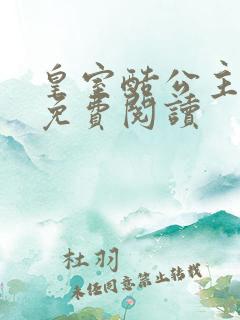 皇室酷公主
免費閱讀
杜羽
未经同意禁止转载